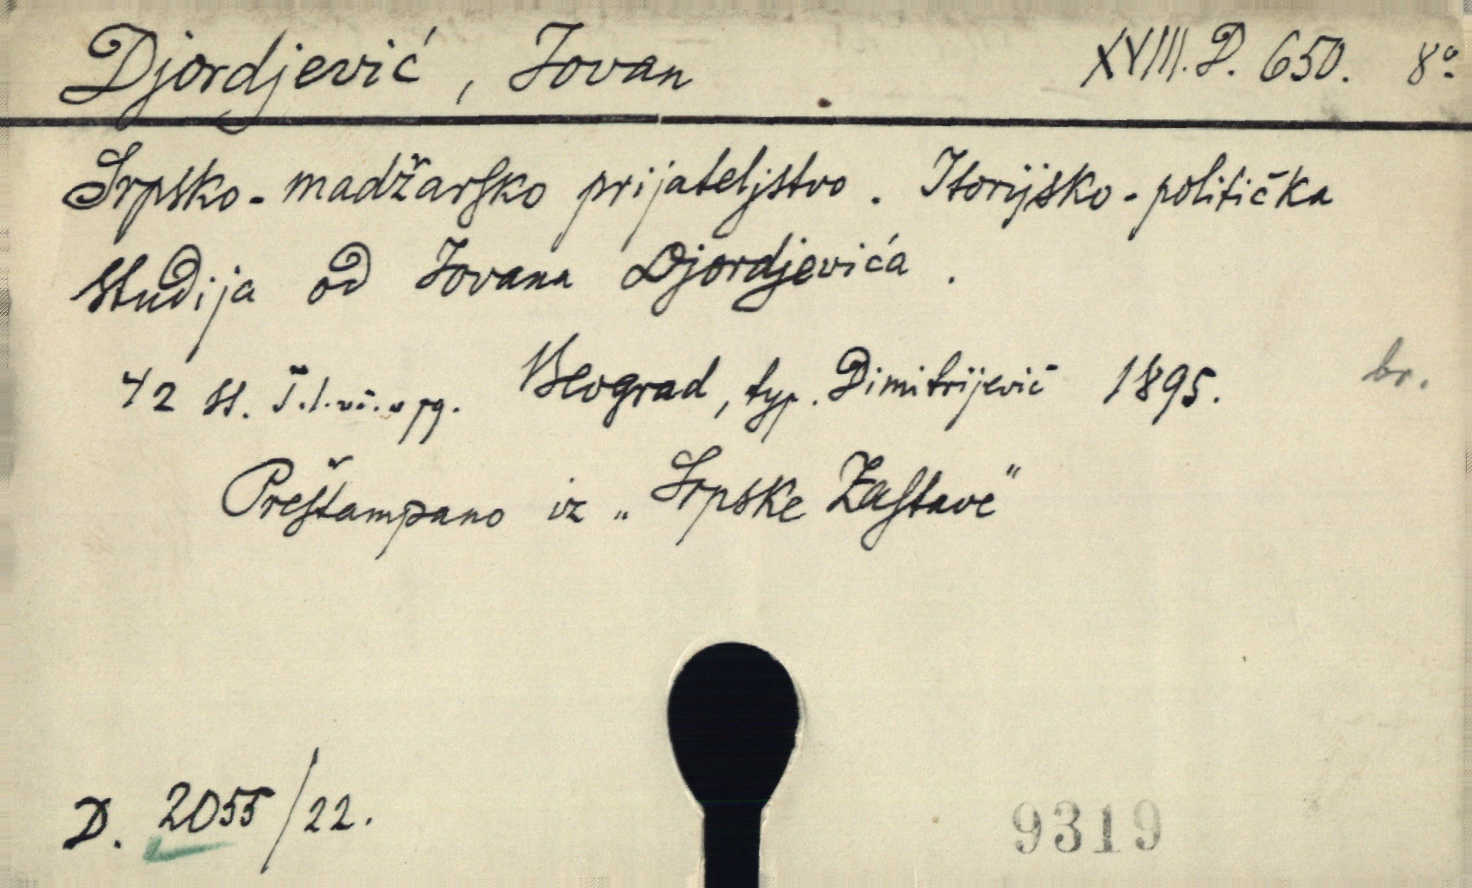 Djordjević, Jovan XVIII. D. 650. 8º
Srpsko-madžarsko prijateljstvo. Istorijsko-politička
studija od Jovana Djordjevića.
42 st. Beograd, typ. Dimitrijević 1895. br.
Preštampano iz „Srpske Zastave"
D. 2055/22.
9319